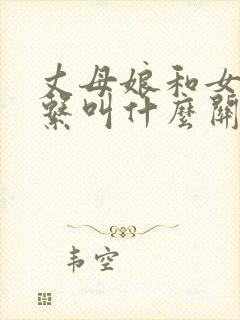 丈母娘和女
繫叫什麼關
韦空